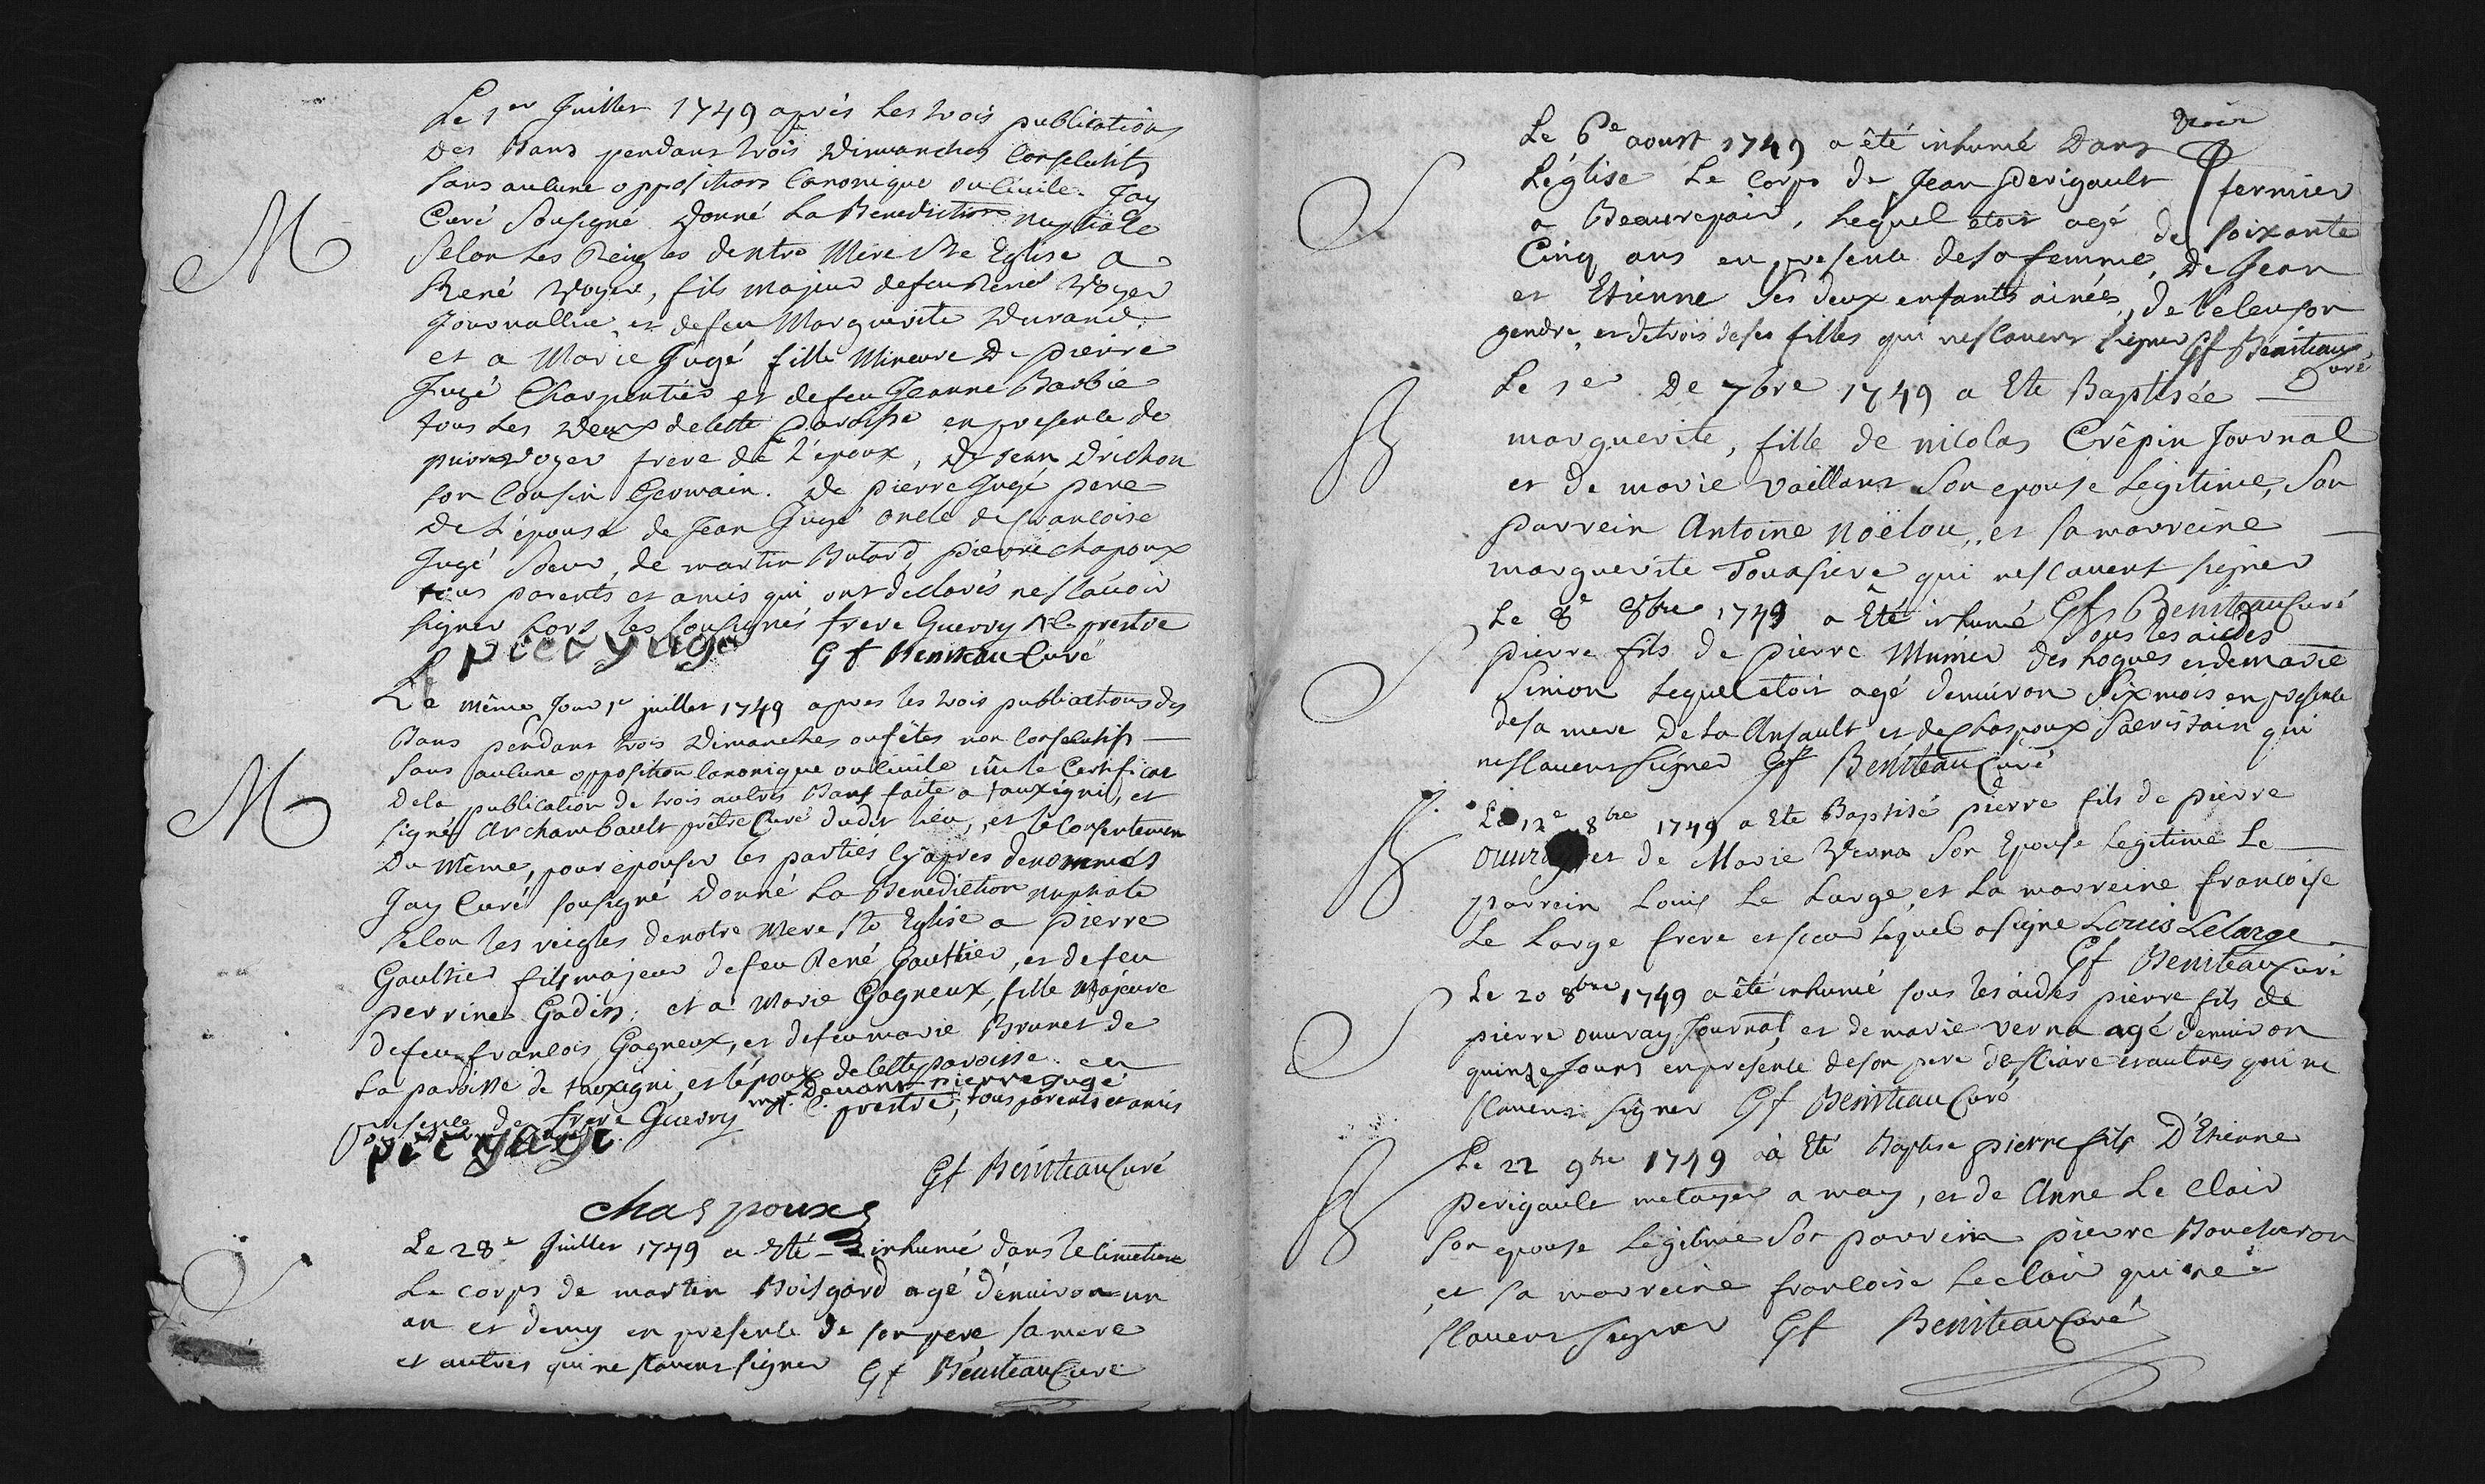 Le 1er Juillet 1749 après les trois publications
des Bans pendant trois Dimanches Consecutifs
sans aucune oppositions Canonique ou Civile. Jay
M
Curé Sousigné Donné La Benediction nuptiale
Selon Les Reigles dentre Mere Ste Eglise a
René Voyer, fils majeur defeu René Voyer
Journallier, et defeu Marguerite Durand.
et a Marie Jugé fille Mineure De pierre
Jugé Charpentier et defeu Jeanne Barbie
tous Les Deux de cette Paroisse en presence de
pierre Voyer frere de L'époux, De Jean Drichon
son Cousin Germain. De pierre Jugé pere
De L'épouse de Jean Jugé oncle de francoise
Jugé Soeur, de martin Butard, pierre chapoux
tous parents et amis qui ont declarés ne scavoir
signer hors les sousignés frere Guerry prestre
pier yuge G f Beniteau Curé
Le même Jour 1er juillet 1749 apres les trois publications des
Bans pendant trois Dimanches ou fêtes non Consecutifs
sans aucune opposition Canonique ou Civile vu le Certificat
M
dela publication de trois autres Bans faite a tauxigni, et
signé Archambault prêtre Curé dudit lieu, et le Consentement
Du Même, pour épouser les parties Cy apres denommés
Jay Curé sousigné Donné La Benediction nuptiale
selon les reigles denotre Mere Ste Eglise a Pierre
Gaultier fils majeur defeu René Gaultier, et defeu
perrine Gadin; et a Marie Gagneux, fille Majeure
defeu francois Gagneux, et defeu marie Brunet de
La paroisse de tauxigni, et l'époux de cette paroisse en
presence de frere Guerry prestre, Devant pierre Jugé tous parents et amis
pier yuge
Gf Beniteau Curé
chaspoux
Le 28e Juillet 1749 a été inhumé dans le Cimetiere
S
Le corps de martin Boisgard agé d'environ un
an et demy en presence de son pere, sa mere
et autres qui ne scavent signer Gf Beniteau Curé
Le 6e aoust 1749 a été inhumé Dans
S
L'église Le Corps de Jean Perigault fermier
a Beaurepair, Lequel etoit agé de soixante
Cinq ans en presence de sa femme, De Jean
et Etienne ses deux enfants ainés, de Veleu son
gendre, et de trois de ses filles qui ne scavent signer Gf Beniteau
Curé
Le 1er De 7bre 1749 a Ete Baptisée
B
marguerite, fille de nicolas Crêpin Journal
et de marie Vaillant Son epouse Legitime, Son
parrein Antoine Noëlou, et sa marreine
marguerite Tourasiere qui ne scavent signer
Gf Beniteau Curé
Le 8e 8bre 1749 a Eté inhumé sous les aides
S
pierre fils de pierre Munier des hogues et de marie
Simon Lequel etoit agé denviron Six mois en presence
de sa mere De La Ansault et de chaspoux Sacristain qui
ne scavent signer Gf Beniteau Curé
Le 12e 8bre 1749 a Ete Baptisé pierre fils de pierre
B
Ouvray et de Marie Verna Son Epouse Legitime Le
parrein Louis Le Large, et La marreine francoise
Le Large frere et soeur Lequel a signé Louis Lelarge
Gf Beniteau Curé
Le 20 8bre 1749 a été inhumé sous les aides pierre fils de
S
pierre ouvray Journal, et de marie verna agé denviron
quinze Jours en presence de son pere et autres qui ne
scavent signer Gf Beniteau Curé
Le 22 9bre 1749 a Eté Baptisé pierre fils D'Etienne
B
perigault metayer a may, et de Anne Le Clair
Son epouse Legitime Son parrein pierre Boucheron
et sa marreine francoise Leclair qui ne
scavent signer Gf Beniteau Curé